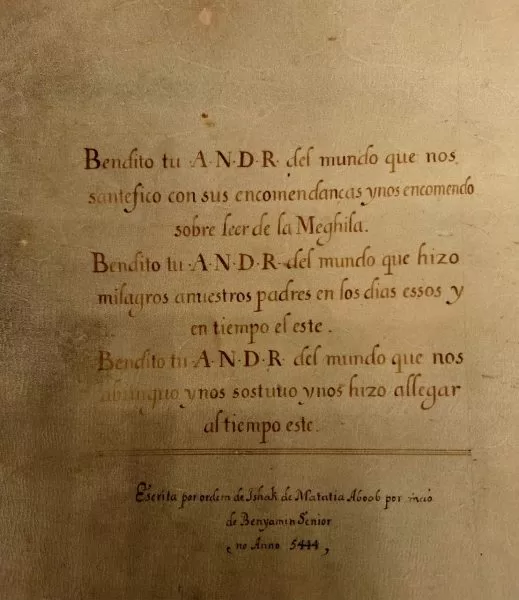 Bendito tu ·A·N·D·R· del mundo que nos
santefico con sus encomendancas ynos encomendo
sobre leer de la Meghila.
Bendito tu ·A·N·D·R· del mundo que hizo
milagros anuestros padres en los dias essos y
en tiempo el este.
Bendito tu ·A·N·D·R· del mundo que nos
abunguo ynos sostutio ynos hizo allegar
al tiempo este.
Escrita por ordem de Ishak de Matatia Aboab por maõ
de Benyamin Senior
no Anno 5444,